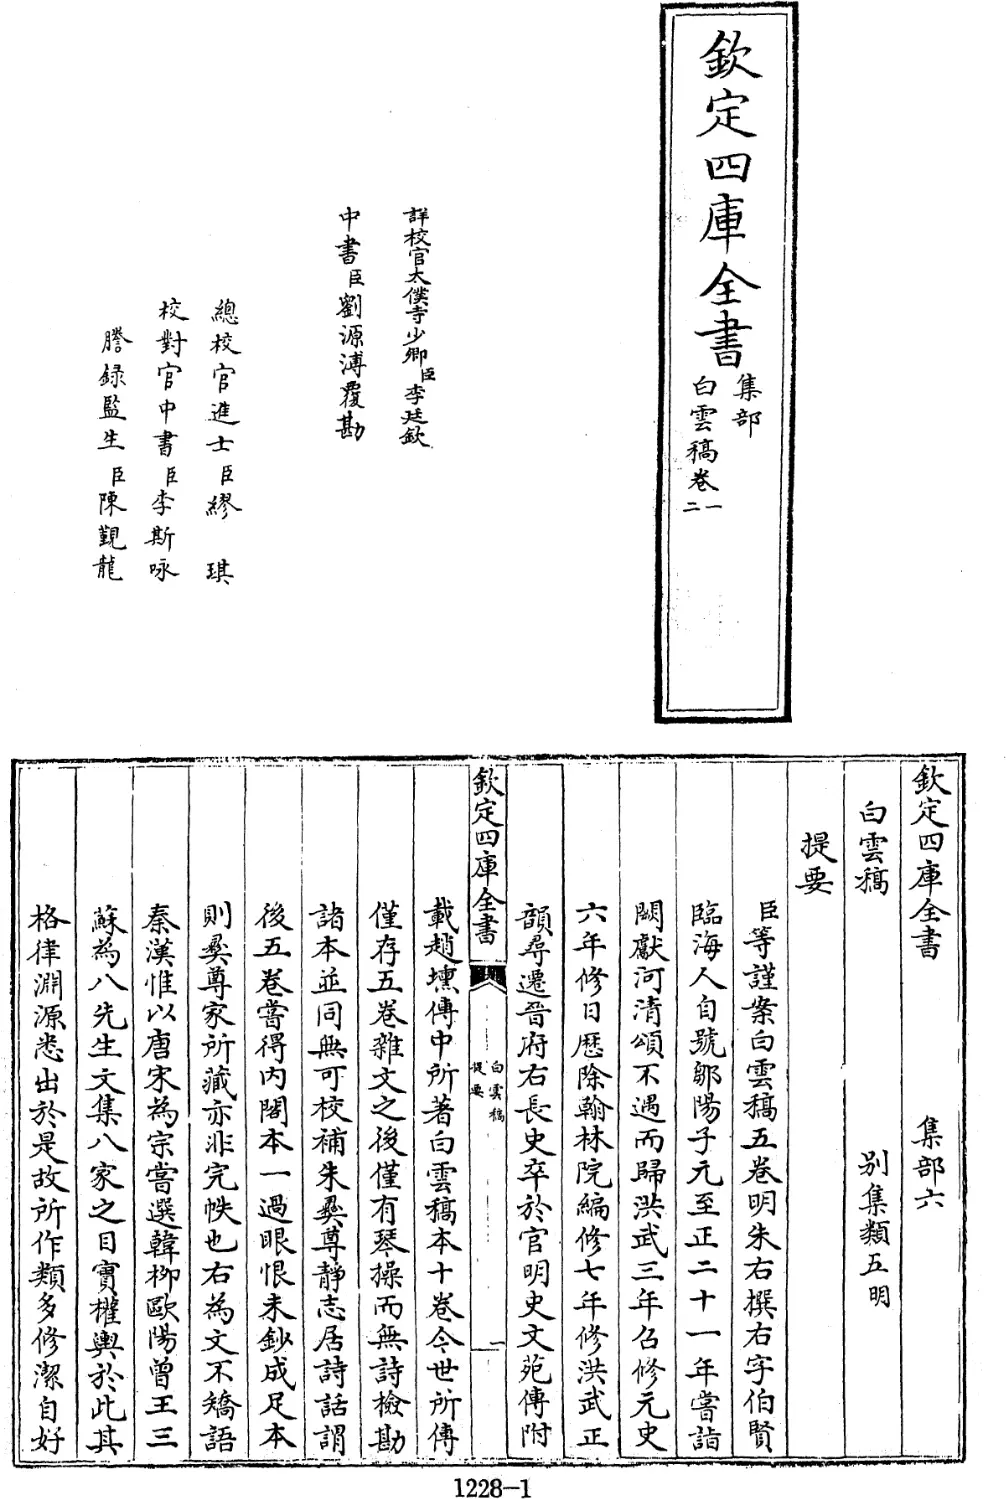 欽定四庫全書
集部
白雲稿卷一
二
詳校官太僕寺少卿臣李廷欽
中書臣劉源溥覆勘
總校官進士臣繆琪
校對官中書臣李斯咏
謄錄監生臣陳覲龍
欽定四庫全書 集部六
白雲稿 別集類五明
提要
臣等謹案白雲稿五卷明朱右撰右字伯賢
臨海人自號鄒陽子元至正二十一年嘗詣
闕獻河清頌不遇而歸洪武三年召修元史
六年修日歷除翰林院編修七年修洪武正
韻尋遷晉府右長史卒於官明史文苑傳附
欽定四庫全書
白雲稿
提要
一
載趙壎傳中所著白雲稿本十卷今世所傳
僅存五卷雜文之後僅有琴操而無詩檢勘
諸本並同無可校補朱彝尊靜志居詩話謂
後五卷嘗得内閣本一過眼恨未鈔成足本
則彝尊家所藏亦非完帙也右為文不矯語
秦漢惟以唐宋為宗嘗選韓栁歐陽曾王三
蘇為八先生文集八家之目實權輿於此其
格律淵源悉出於是故所作類多修潔自好
1228-1